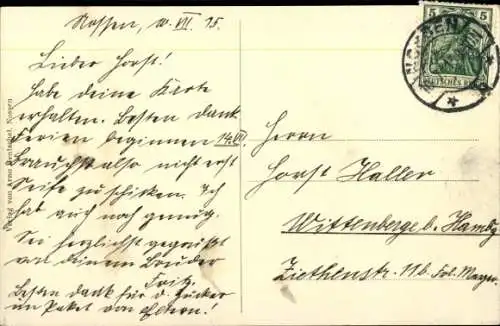 Nossen, 10. VII. 15.
Lieber Horst!
Habe deine Karte
erhalten. Besten Dank.
Ferien beginnen 14. VII.
Brauchst also nicht erst
Seife zu schicken. Ich
hab auch noch genug.
Sei herzlichst gegrüßt
von deinem Bruder
Fritz.
Besten Dank für d. Zucker
im Paket von Eltern!
Verlag von Arno Nossen
Herrn
Horst Haller
Wittenberge b. Hambg
Ziethenstr. 11b.
5 5
DEUTSCHES REICH